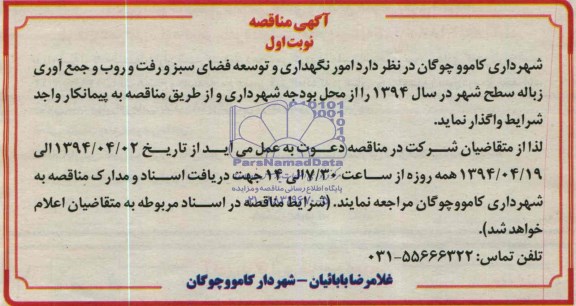 آگهی مناقصه
نوبت اول
شهرداری کامو و چوگان در نظر دارد امور نگهداری و توسعه فضای سبز و رفت و روب و جمع آوری
زباله سطح شهر در سال ۱۳۹۴ را از محل بودجه شهرداری و از طریق مناقصه به پیمانکار واجد
شرایط واگذار نماید.
لذا از متقاضیان شرکت در مناقصه دعوت به عمل می آید از تاریخ ۱۳۹۴/۰۴/۰۲ الی
۱۳۹۴/۰۴/۱۹ همه روزه از ساعت ۷/۳۰ الی ۱۴ جهت دریافت اسناد و مدارک مناقصه به
ParsNamadData
پایگاه اطلاع رسانی مناقصه و مزایده
شهرداری کامو و چوگان مراجعه نمایند. (شرایط مناقصه در اسناد مربوطه به متقاضیان اعلام
خواهد شد).
تلفن تماس: ۵۵۶۶۶۳۲۲-۰۳۱
غلامرضا بابائیان - شهردار کامو و چوگان